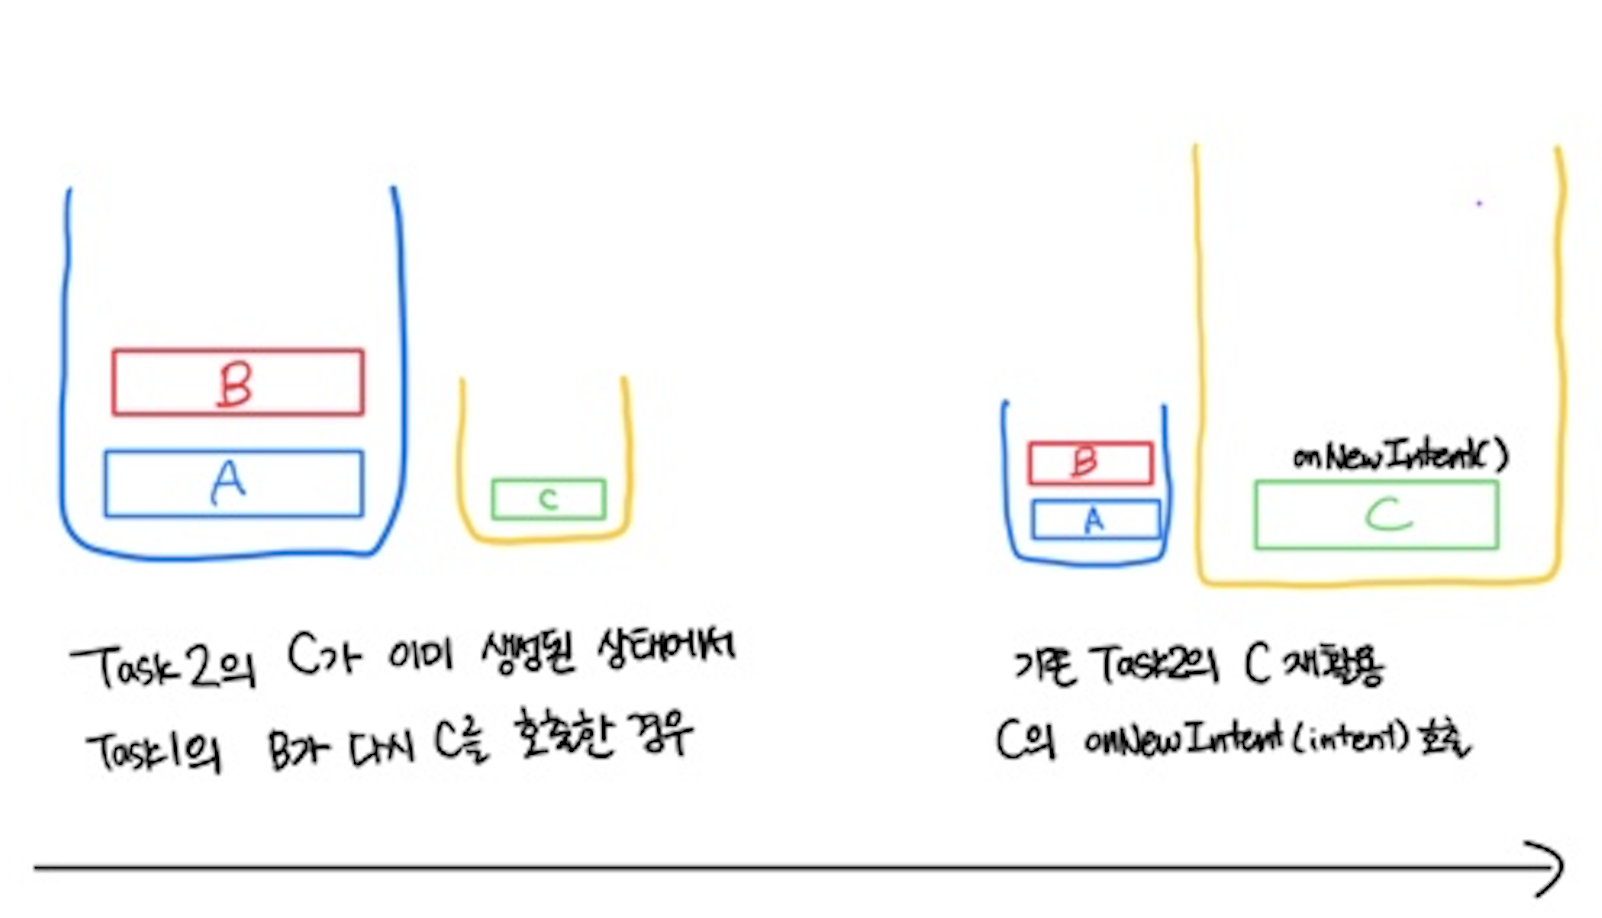 B
A
C
Task2의 C가 이미 생성된 상태에서
Task1의 B가 다시 C를 호출한 경우
B
A
onNewIntent()
C
기존 Task2의 C 재활용
C의 onNewIntent(intent) 호출